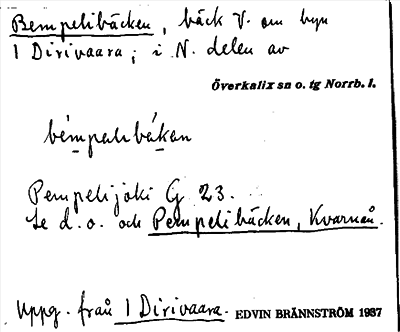 Bempelibäcken, bäck V. om byn
1 Dirivaara; i N. delen av
Överkalix sn o. tg Norrb. l.
bempelibäkan
Pempelijoki G 23.
Se d. o. och Pempelibäcken, Kvarnån.
Uppg. från 1 Dirivaara. EDVIN BRÄNNSTRÖM 1937